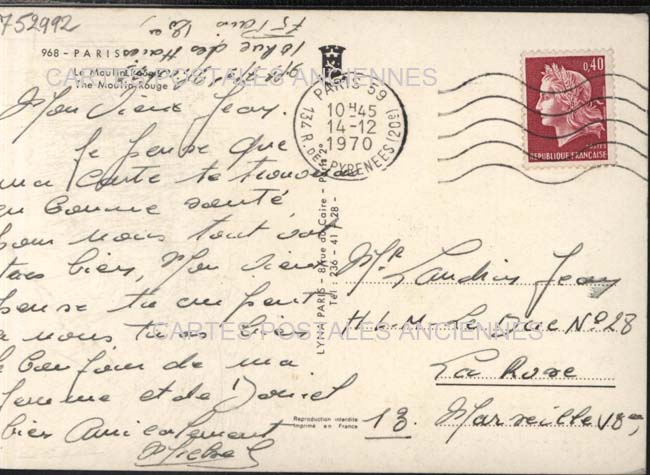 752992
968 - PARIS
Le Moulin Rouge
The Moulin Rouge
18 Rue des
Paris
CARTES POSTALES ANCIENNES
Mon vieux Jean.
Je pense que
ma carte te trouvera
en bonne santé
pour nous tout va
très bien, Mon vieux
pense tu un peut
a nous tu es bien
le bonjour de ma
femme et de Daniel
bien Amicalement
Michel
LYNA PARIS - 8, Rue du Caire - Paris 2e
Tél : 236 - 41 - 28 -
Reproduction interdite
Imprimé en France
PARIS-59
10H45
14-12
1970
134 R. DES PYRENEES (20e)
0,40
POSTES
REPUBLIQUE FRANÇAISE
Mr Landrin Jean
H.L.M. Le N° 28
La Rose
13. Marseille
CARTES POSTALES ANCIENNES